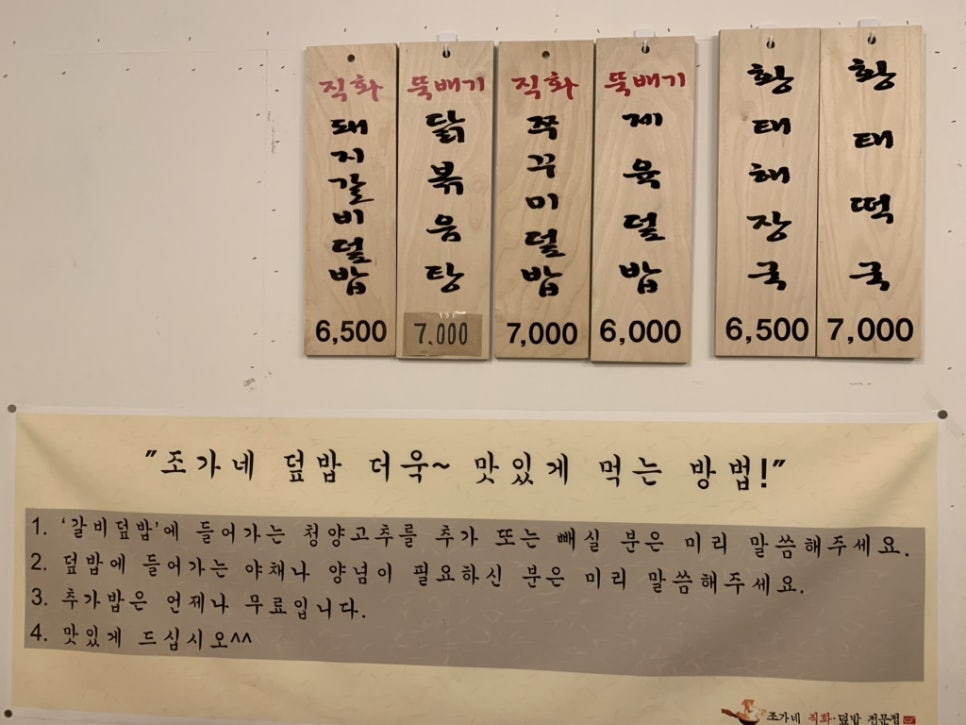 직화 돼지갈비덮밥 6,500
뚝배기 닭볶음탕 7,000
직화 쭈꾸미덮밥 7,000
뚝배기 제육덮밥 6,000
황태해장국 6,500
황태떡국 7,000
"조가네 덮밥 더욱~ 맛있게 먹는 방법!"
1. '갈비덮밥'에 들어가는 청양고추를 추가 또는 빼실 분은 미리 말씀해주세요.
2. 덮밥에 들어가는 야채나 양념이 필요하신 분은 미리 말씀해주세요.
3. 추가밥은 언제나 무료입니다.
4. 맛있게 드십시오^^
조가네 직화·덮밥 전문점